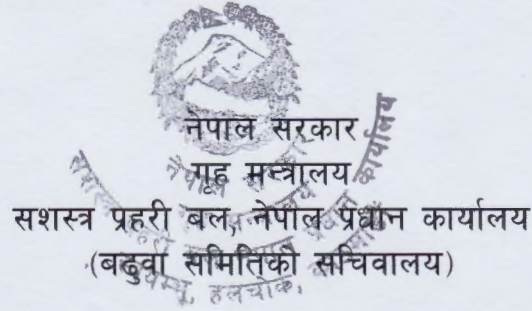 नेपाल सरकार
गृह मन्त्रालय
सशस्त्र प्रहरी बल, नेपाल प्रधान कार्यालय
(बढुवा समितिको सचिवालय)
हलचोक,